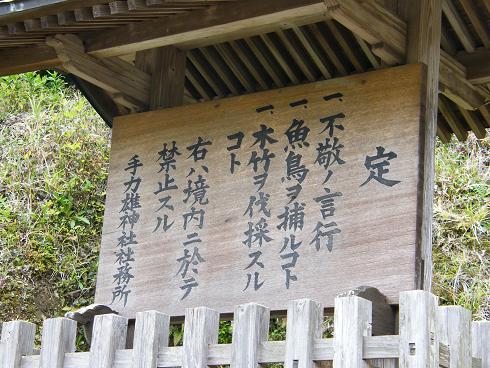 定
一、不敬ノ言行
一、魚鳥ヲ捕ルコト
一、木竹ヲ伐採スル
コト
右ハ境内ニ於テ
禁止スル
手力雄神社社務所